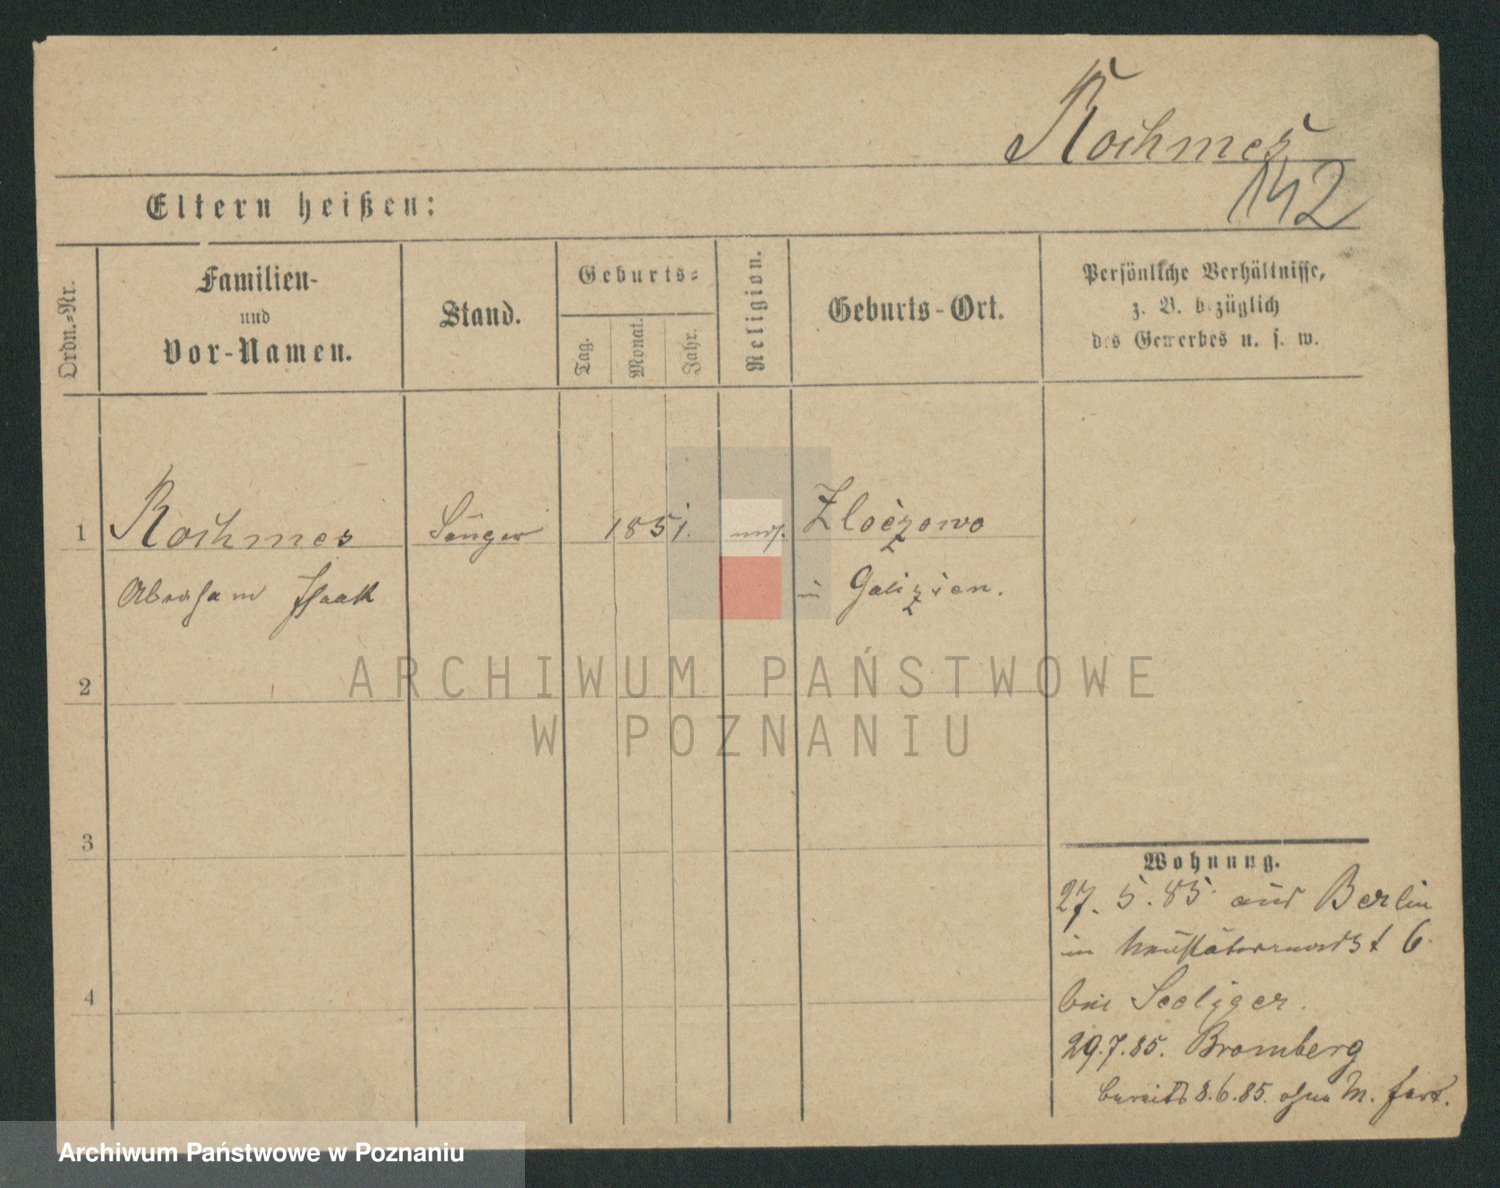 Rochmes
142
Eltern heißen:
Ordn.-Nr.
Familien-
und
Vor-Namen.
Stand.
Geburts-
Tag.
Monat.
Jahr.
Religion.
Geburts-Ort.
Persönliche Verhältnisse,
z. B. bezüglich
des Gewerbes u. s. w.
1 Rochmes Sänger 1851. mos. Zloczowo
Abraham Isaak in Galizien.
2
3
4
Wohnung.
27. 5. 85. aus Berlin
in Neustädtermarkt 6
bei Seeliger.
29.7.85. Bromberg
bereits 8.6.85. ohne M. fort.
ARCHIWUM PAŃSTWOWE
W POZNANIU
Archiwum Państwowe w Poznaniu